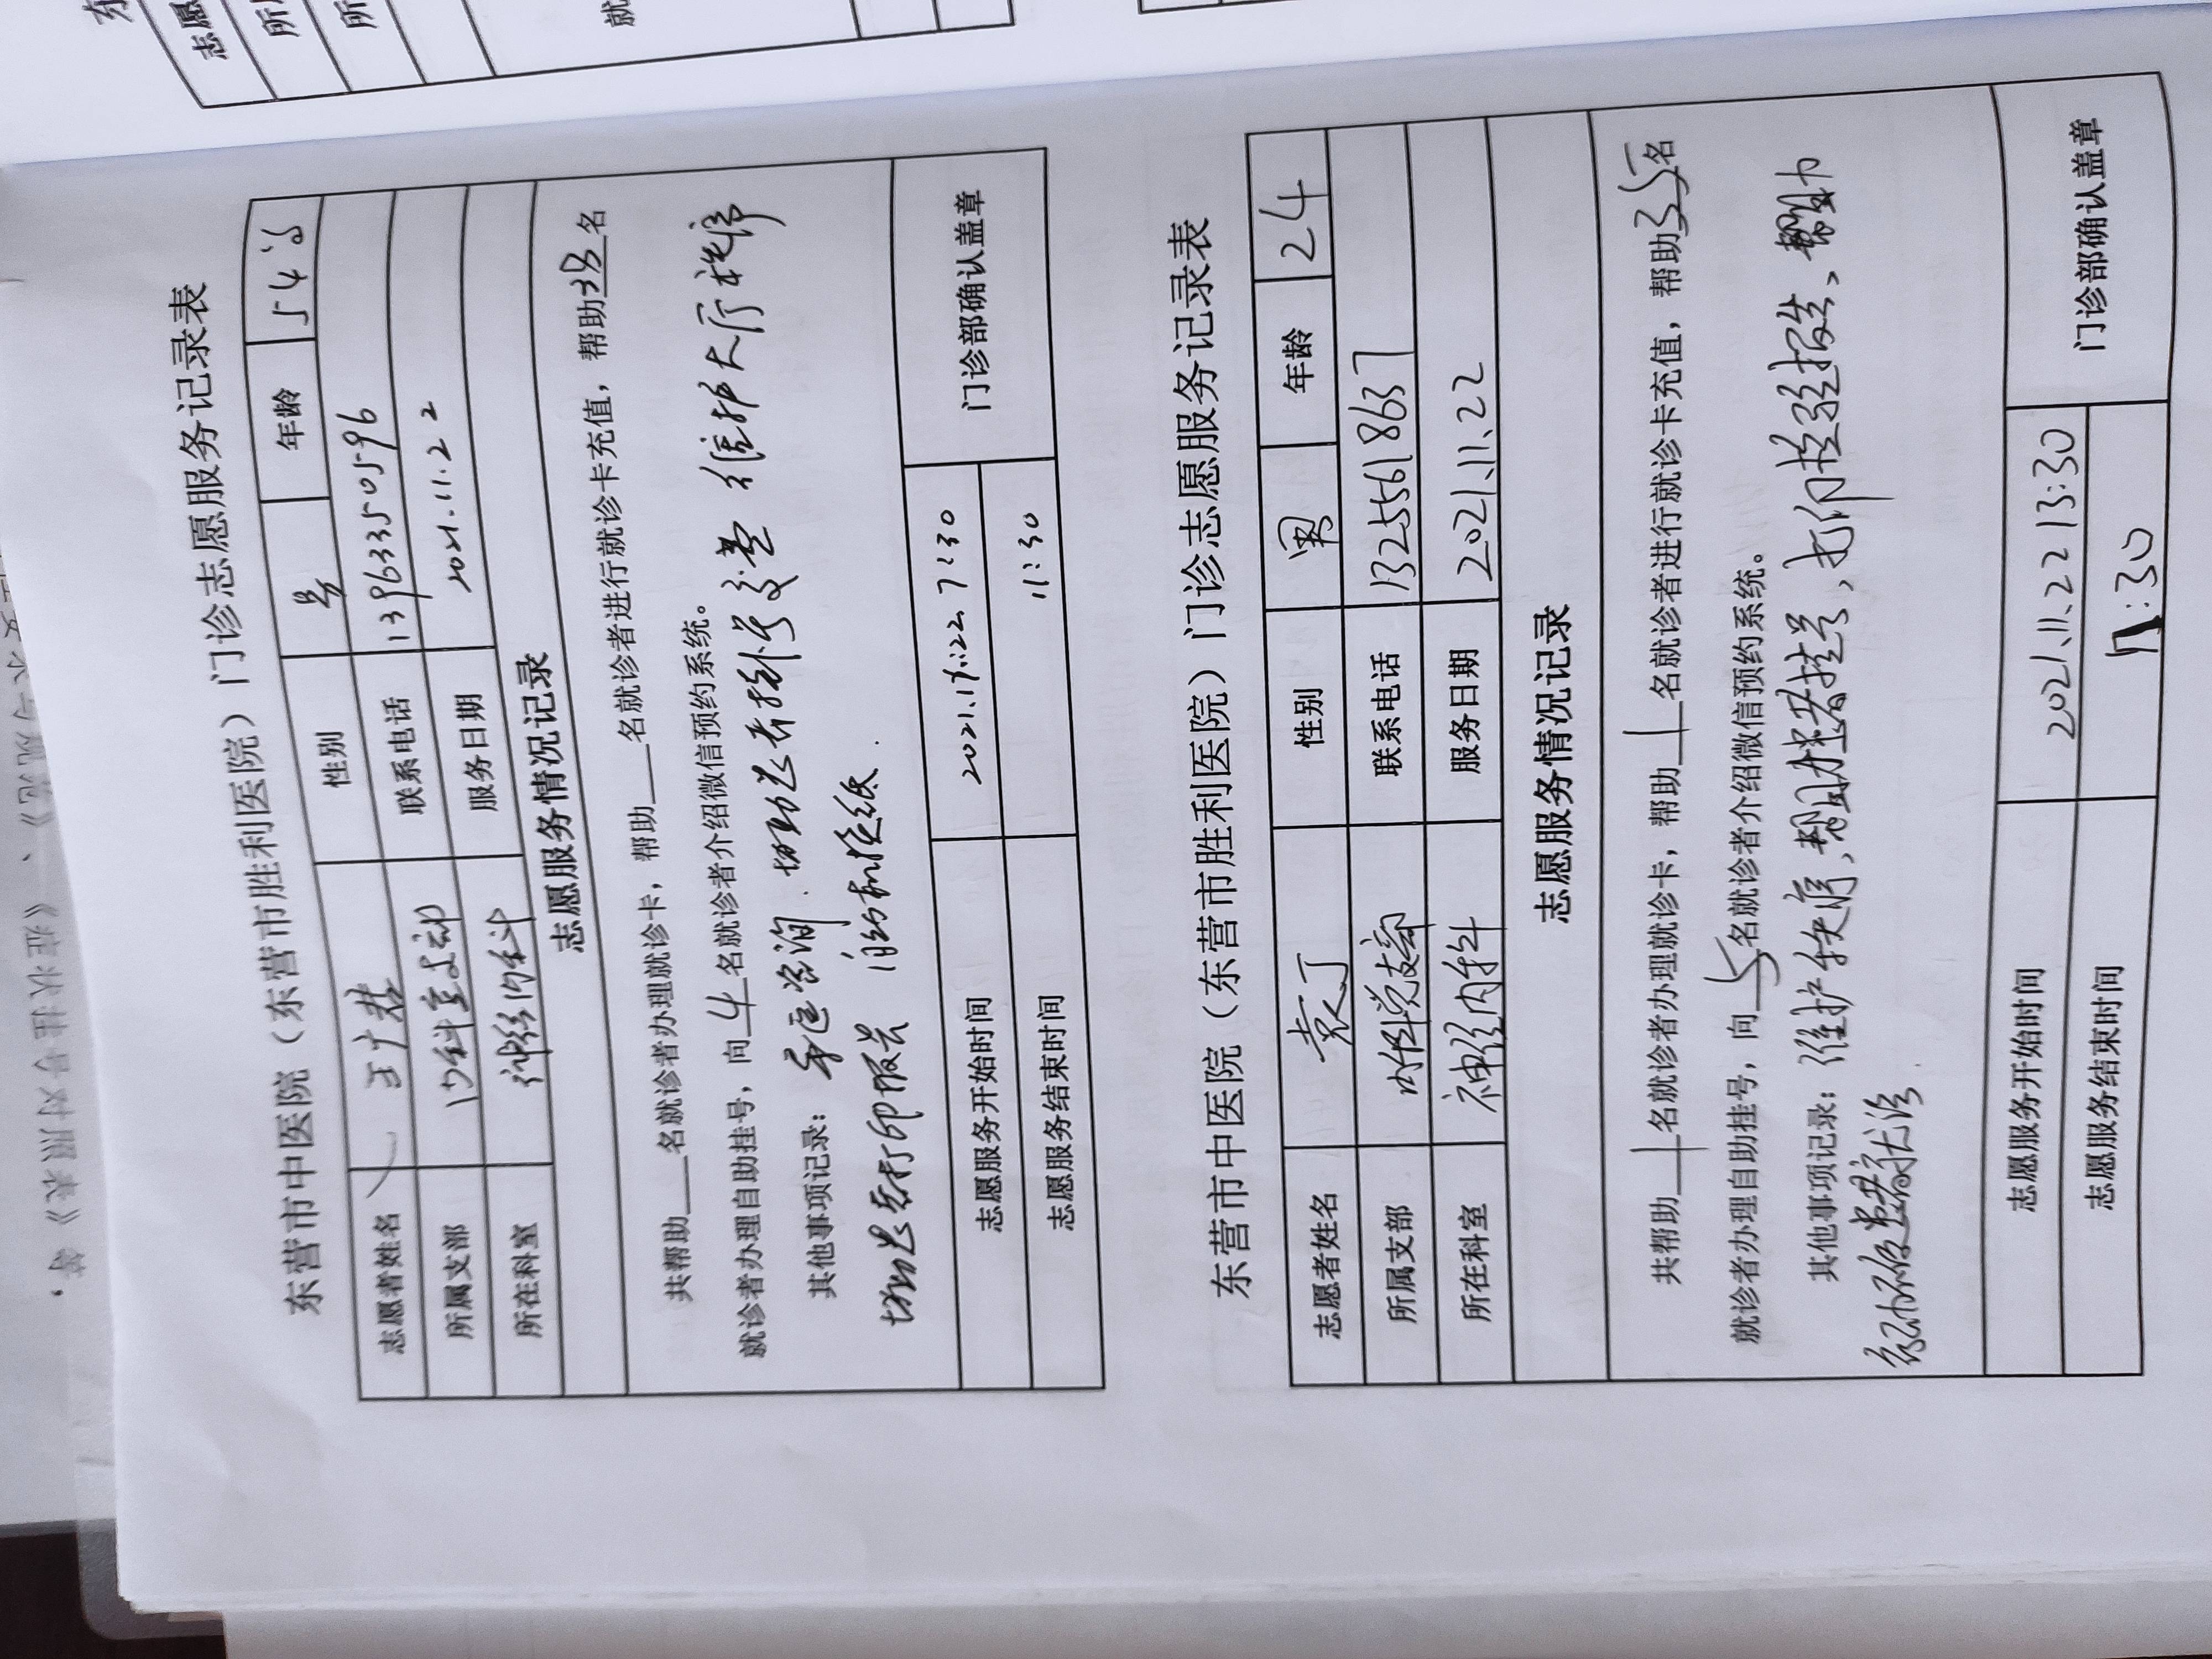 东营市中医院（东营市胜利医院）门诊志愿服务记录表
志愿者姓名 性别 男 年龄 54岁
所属支部 内科党支部 联系电话 13963350596
所在科室 神经内科 服务日期 2021.11.22
志愿服务情况记录
共帮助___名就诊者办理就诊卡，帮助___名就诊者进行就诊卡充值，帮助 名
就诊者办理自助挂号，向 4 名就诊者介绍微信预约系统。
其他事项记录： 咨询 协助患者挂号 维护大厅秩序
协助患者打印报告
志愿服务开始时间 2021.11.22 7:30 门诊部确认盖章
志愿服务结束时间 11:30
东营市中医院（东营市胜利医院）门诊志愿服务记录表
志愿者姓名 袁丁 性别 男 年龄 24
所属支部 内科党支部 联系电话 13255618637
所在科室 神经内科 服务日期 2021.11.22
志愿服务情况记录
共帮助 1 名就诊者办理就诊卡，帮助 1 名就诊者进行就诊卡充值，帮助 35 名
就诊者办理自助挂号，向 5 名就诊者介绍微信预约系统。
其他事项记录：维护秩序，帮助患者挂号，打印检验报告、帮助
患者
志愿服务开始时间 2021.11.22 13:30 门诊部确认盖章
志愿服务结束时间 :30